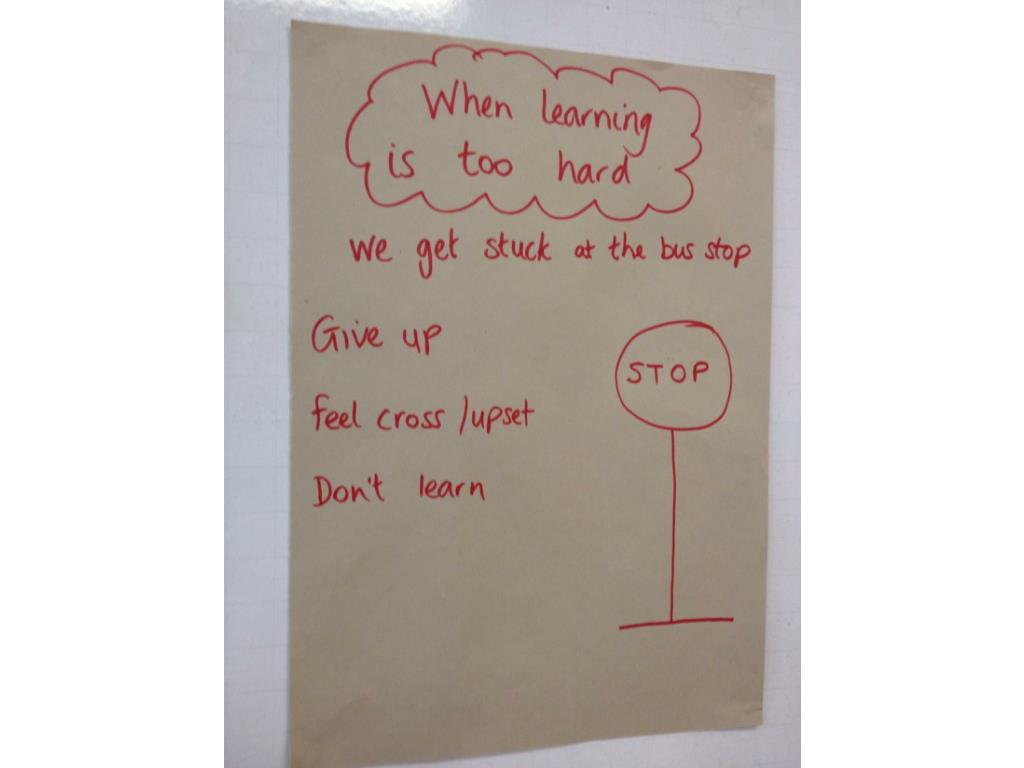 When learning
is too hard
we get stuck at the bus stop
Give up
STOP
feel cross/upset
Don't learn